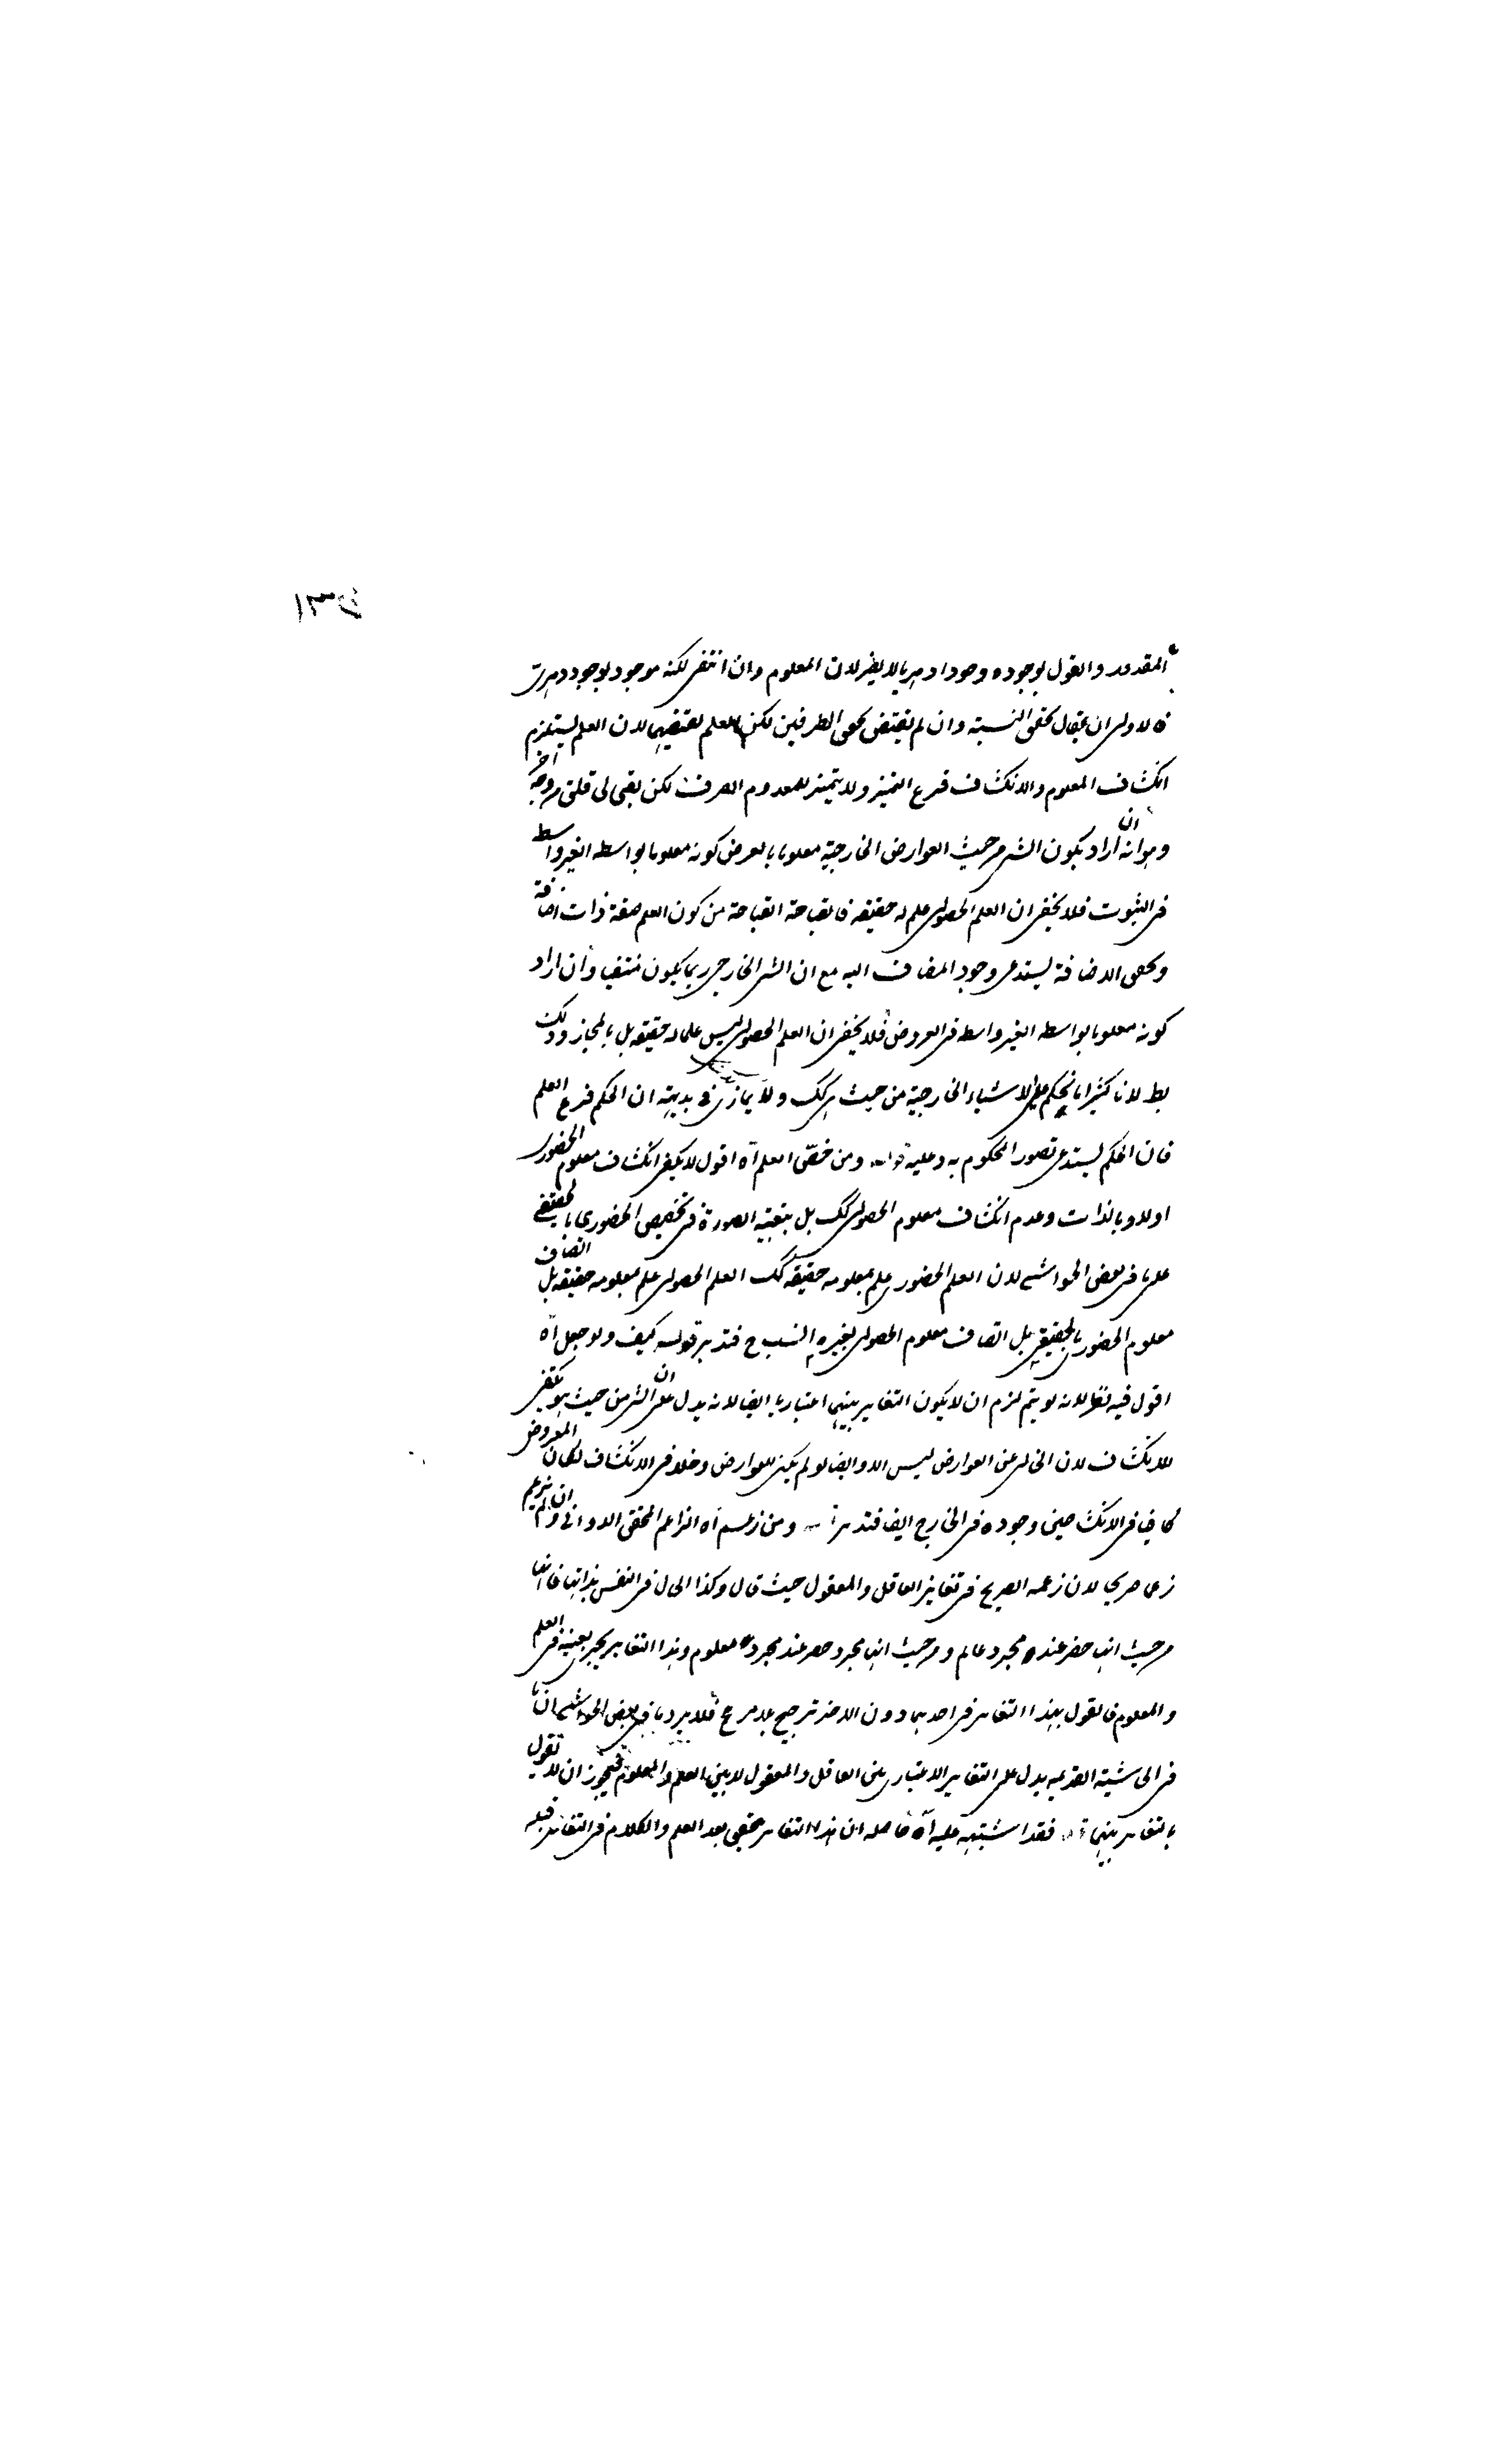 المقدور والقول بوجوده وجودا دهريا لا يضر لان المعلوم وان انتفى لكنه موجود بوجود دهرى
فالاولى ان يقال تحقق النسبة وان لم يقتض تحقق الطرفين لكن العلم يقتضيهما لان العلم يستلزم
انكشاف المعلوم والانكشاف فرع التميز ولا يتميز المعدوم الصرف لكن بقى لى قلق من وجه اخر
وهو انه ان اراد بكون الشئ من حيث العوارض الخارجية معلوما بالعرض كونه معلوما بواسطه الغير واسطه
فى الثبوت فلا يخفى ان العلم الحصولى علم له حقيقه فالقباحة القباحة من كون العلم صفة ذات اضافة
وتحقق الاضافة يستدعى وجود المضاف اليه مع ان الشئ الخارجى ربما يكون منتفيا وان اراد
كونه معلوما بواسطه الغير واسطه فى العروض فلا يخفى ان العلم الحصولى ليس علما له حقيقه بل بالمجاز وذلك
بط لانا كثيرا ما نحكم على الاشياء الخارجية من حيث هى كك ولا يمارى فى بديهة ان الحكم فرع العلم
فان الحكم يستدعى تصور المحكوم به وعليه قوله ومن خصّ العلم آه اقول لا يكفى انكشاف معلوم الحضورى
اولا وبالذات وعدم انكشاف معلوم الحصولى كك بل بتبعية الصورة فى تخصيص الحضورى بالحقيقى
على ما فى بعض الحواشى لان العلم الحضورى علم بمعلومه حقيقه كك العلم الحصولى علم بمعلومه حقيقه بل اتصاف
معلوم الحضورى بالحقيقى بل اتصاف معلوم الحصولى بغيره انسب ح فتدبر قوله كيف ولو جعل آه
اقول فيه نظر لانه لو يتم لزم ان لا يكون التغاير بينهما اعتباريا ايضا لانه يدل على ان الشئ من حيث هو يكفى
للانكشاف لان الخالى عن العوارض ليس الا هو ايضا لو لم يكن للعوارض دخلا فى الانكشاف لكان المعروض
كافيا فى الانكشاف حين وجوده فى الخارج ايضا فتدبر قوله ومن زعم آه الزاعم المحقق الدوانى ولم ان يزعم
زعما صريحا لان زعمه الصريح فى تغاير العاقل والمعقول حيث قال وكذا الحال فى النفس بذاتها فانها
من حيث انها حضر عنده مجرد عالم ومن حيث انها مجرد حضر عند مجرد معلوم وهذا التغاير يجرى بعينه فى العلم
والمعلوم فالقول بهذا التغاير فى احدهما دون الاخر ترجيح بلا مرجح فلا يرد ما فى بعض الحواشى ان ما
فى الحاشية القديمه يدل على التغاير الاعتبارى بين العاقل والمعقول لا بين العلم والمعلوم فيجوز ان لا يقول
بالتغاير بينهما قوله فقد اشتبه عليه آه حاصله ان هذا التغاير متحقق بعد العلم والكلام فى التغاير قبله